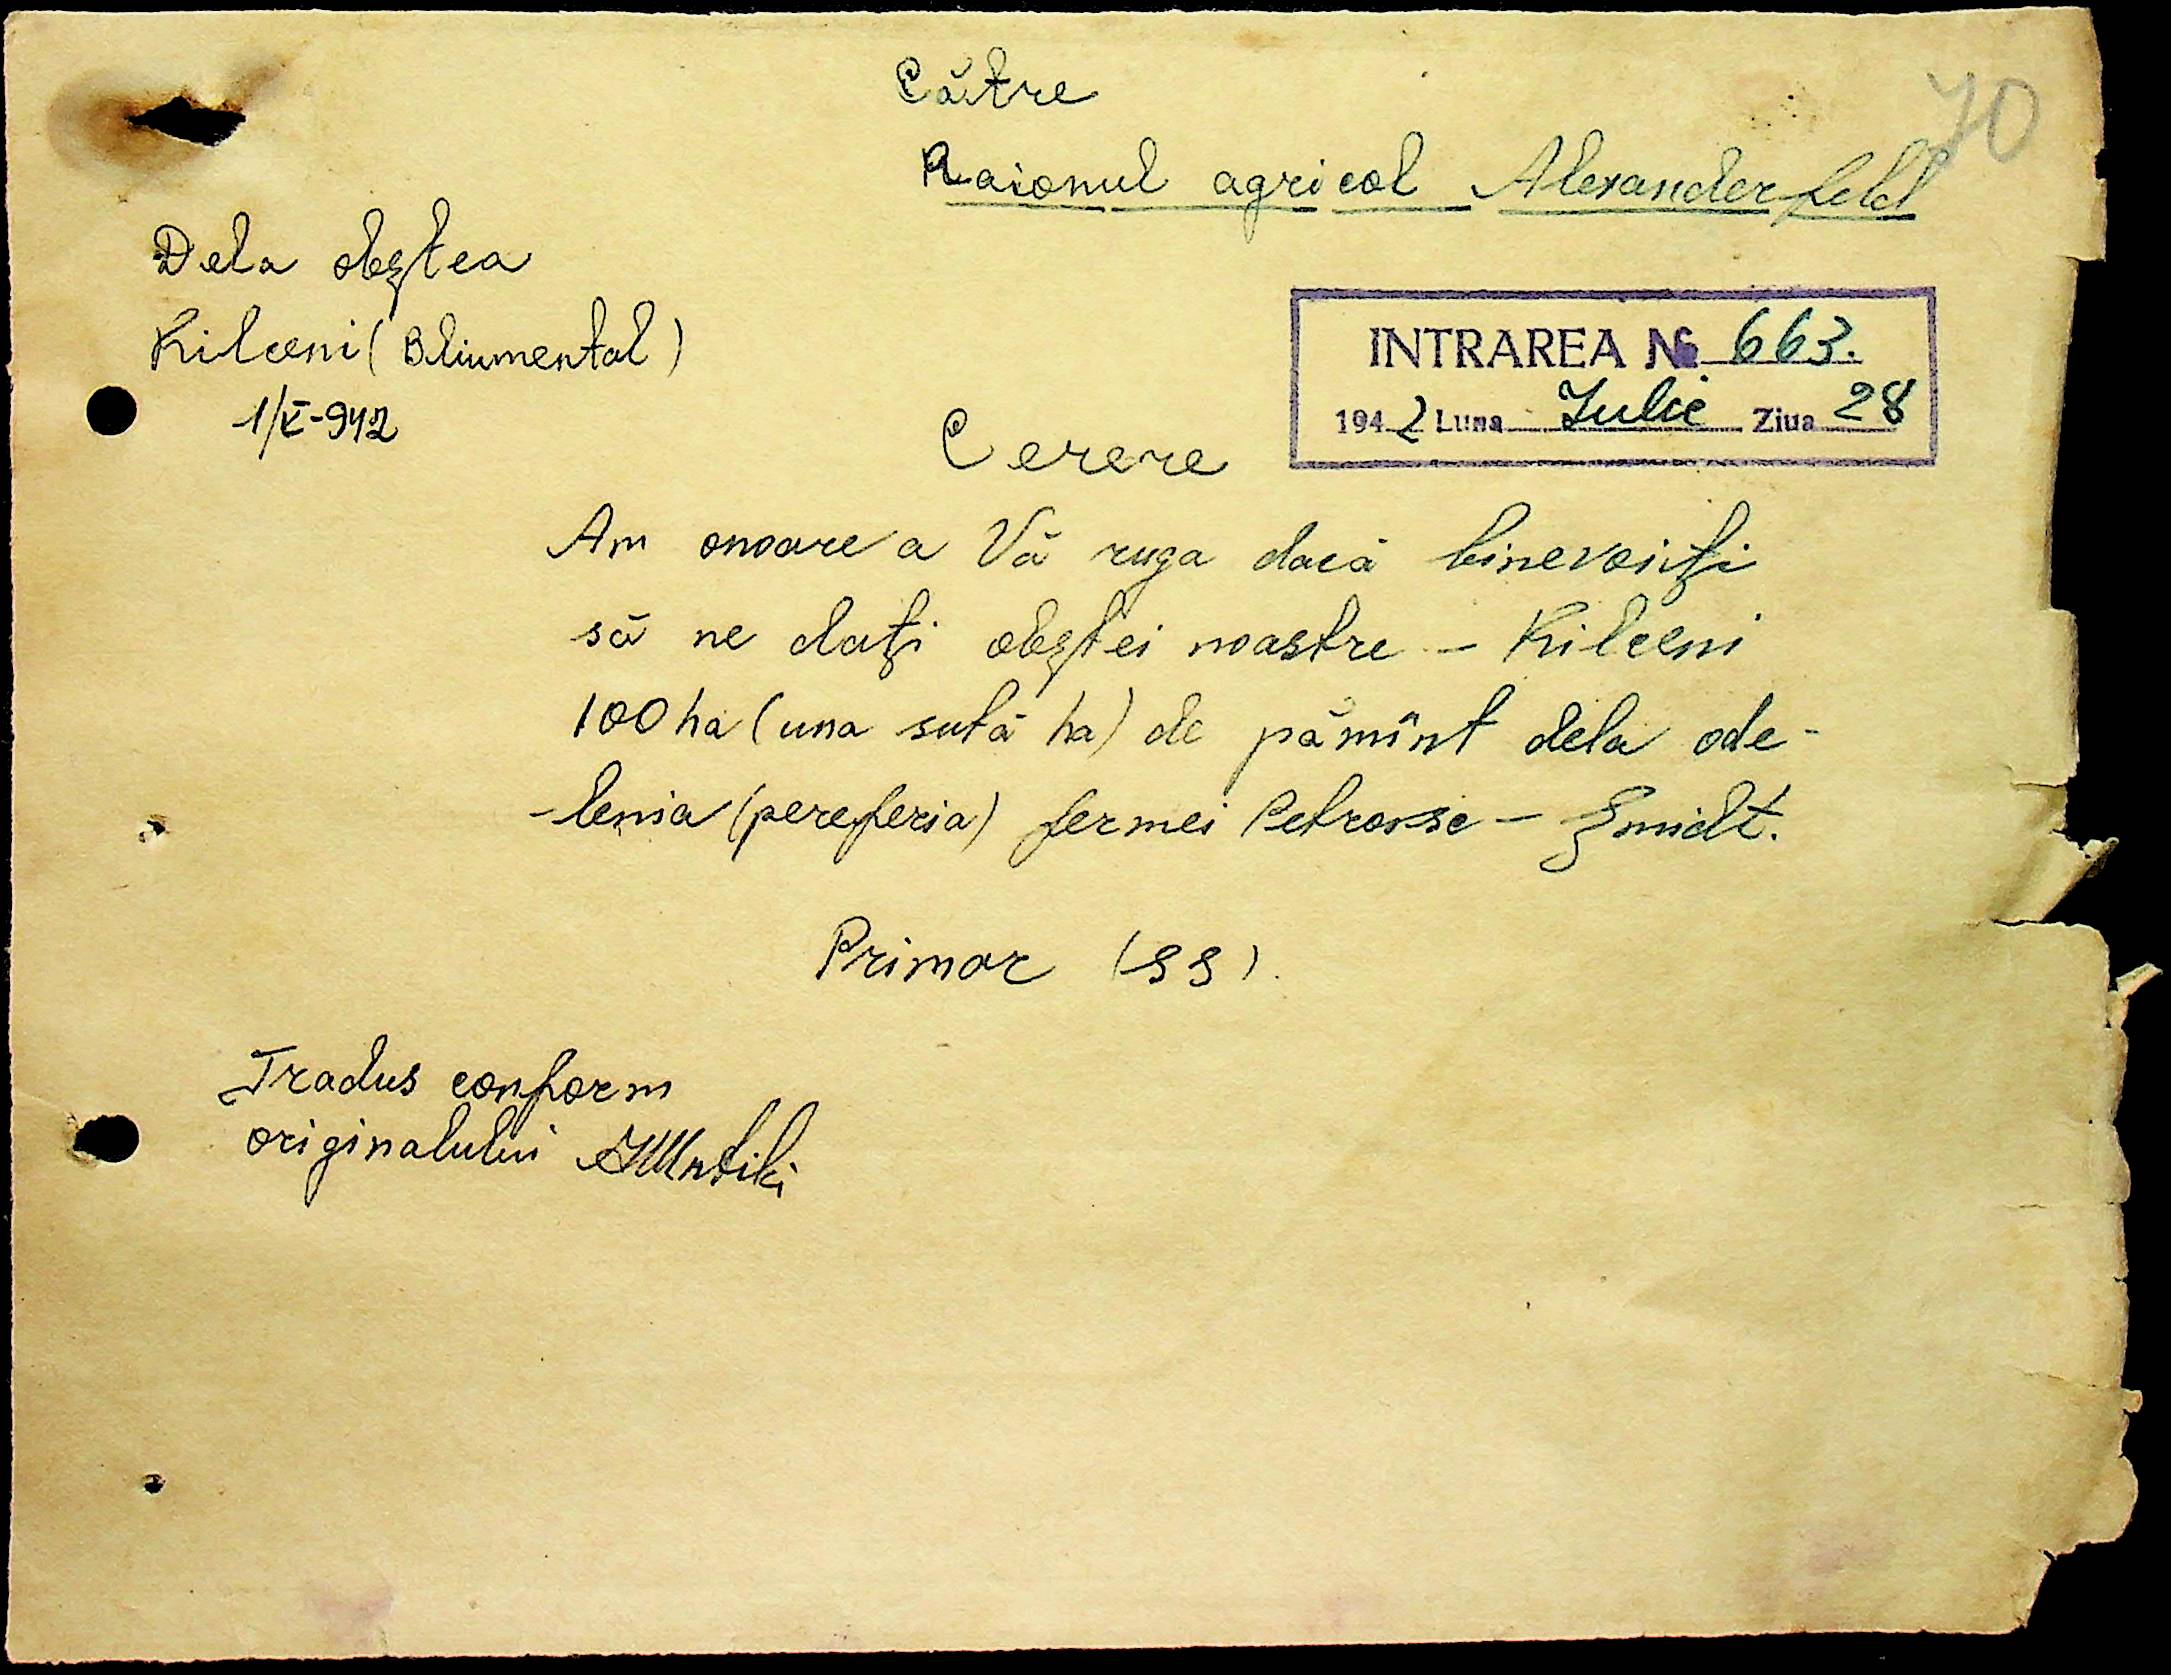 70
Către
Raionul agricol Alexanderfeld
Dela obștea
Kilceni (Bliumental)
1/V-942
INTRAREA № 663.
1942 Luna Iulie Ziua 28
Cerere
Am onoare a Vă ruga dacă binevoiți
să ne dați obștei noastre – Kilceni
100 ha (una sută ha) de pămînt dela ode-
-lenia (pereferia) fermei Petrovse – Șmidt.
Primar (ss).
Tradus conform
originalului